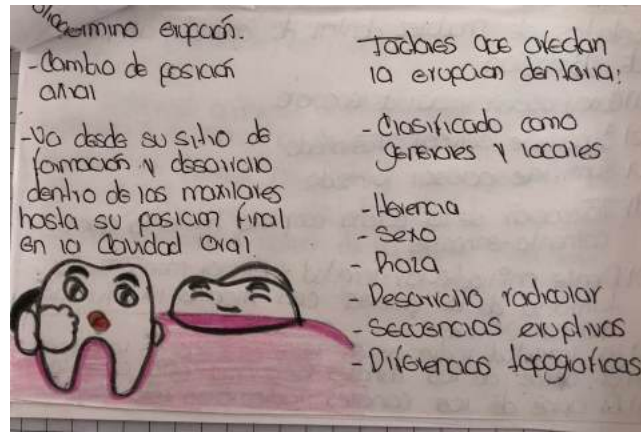 termino erupción.
- Cambio de posición
axial
- Va desde su sitio de
formación y desarrollo
dentro de los maxilares
hasta su posición final
en la cavidad oral
Factores que afectan
la erupción dentaria:
- Clasificado como
generales y locales
- Herencia
- Sexo
- Raza
- Desarrollo radicular
- Secuencias eruptivas
- Diferencias topograficas